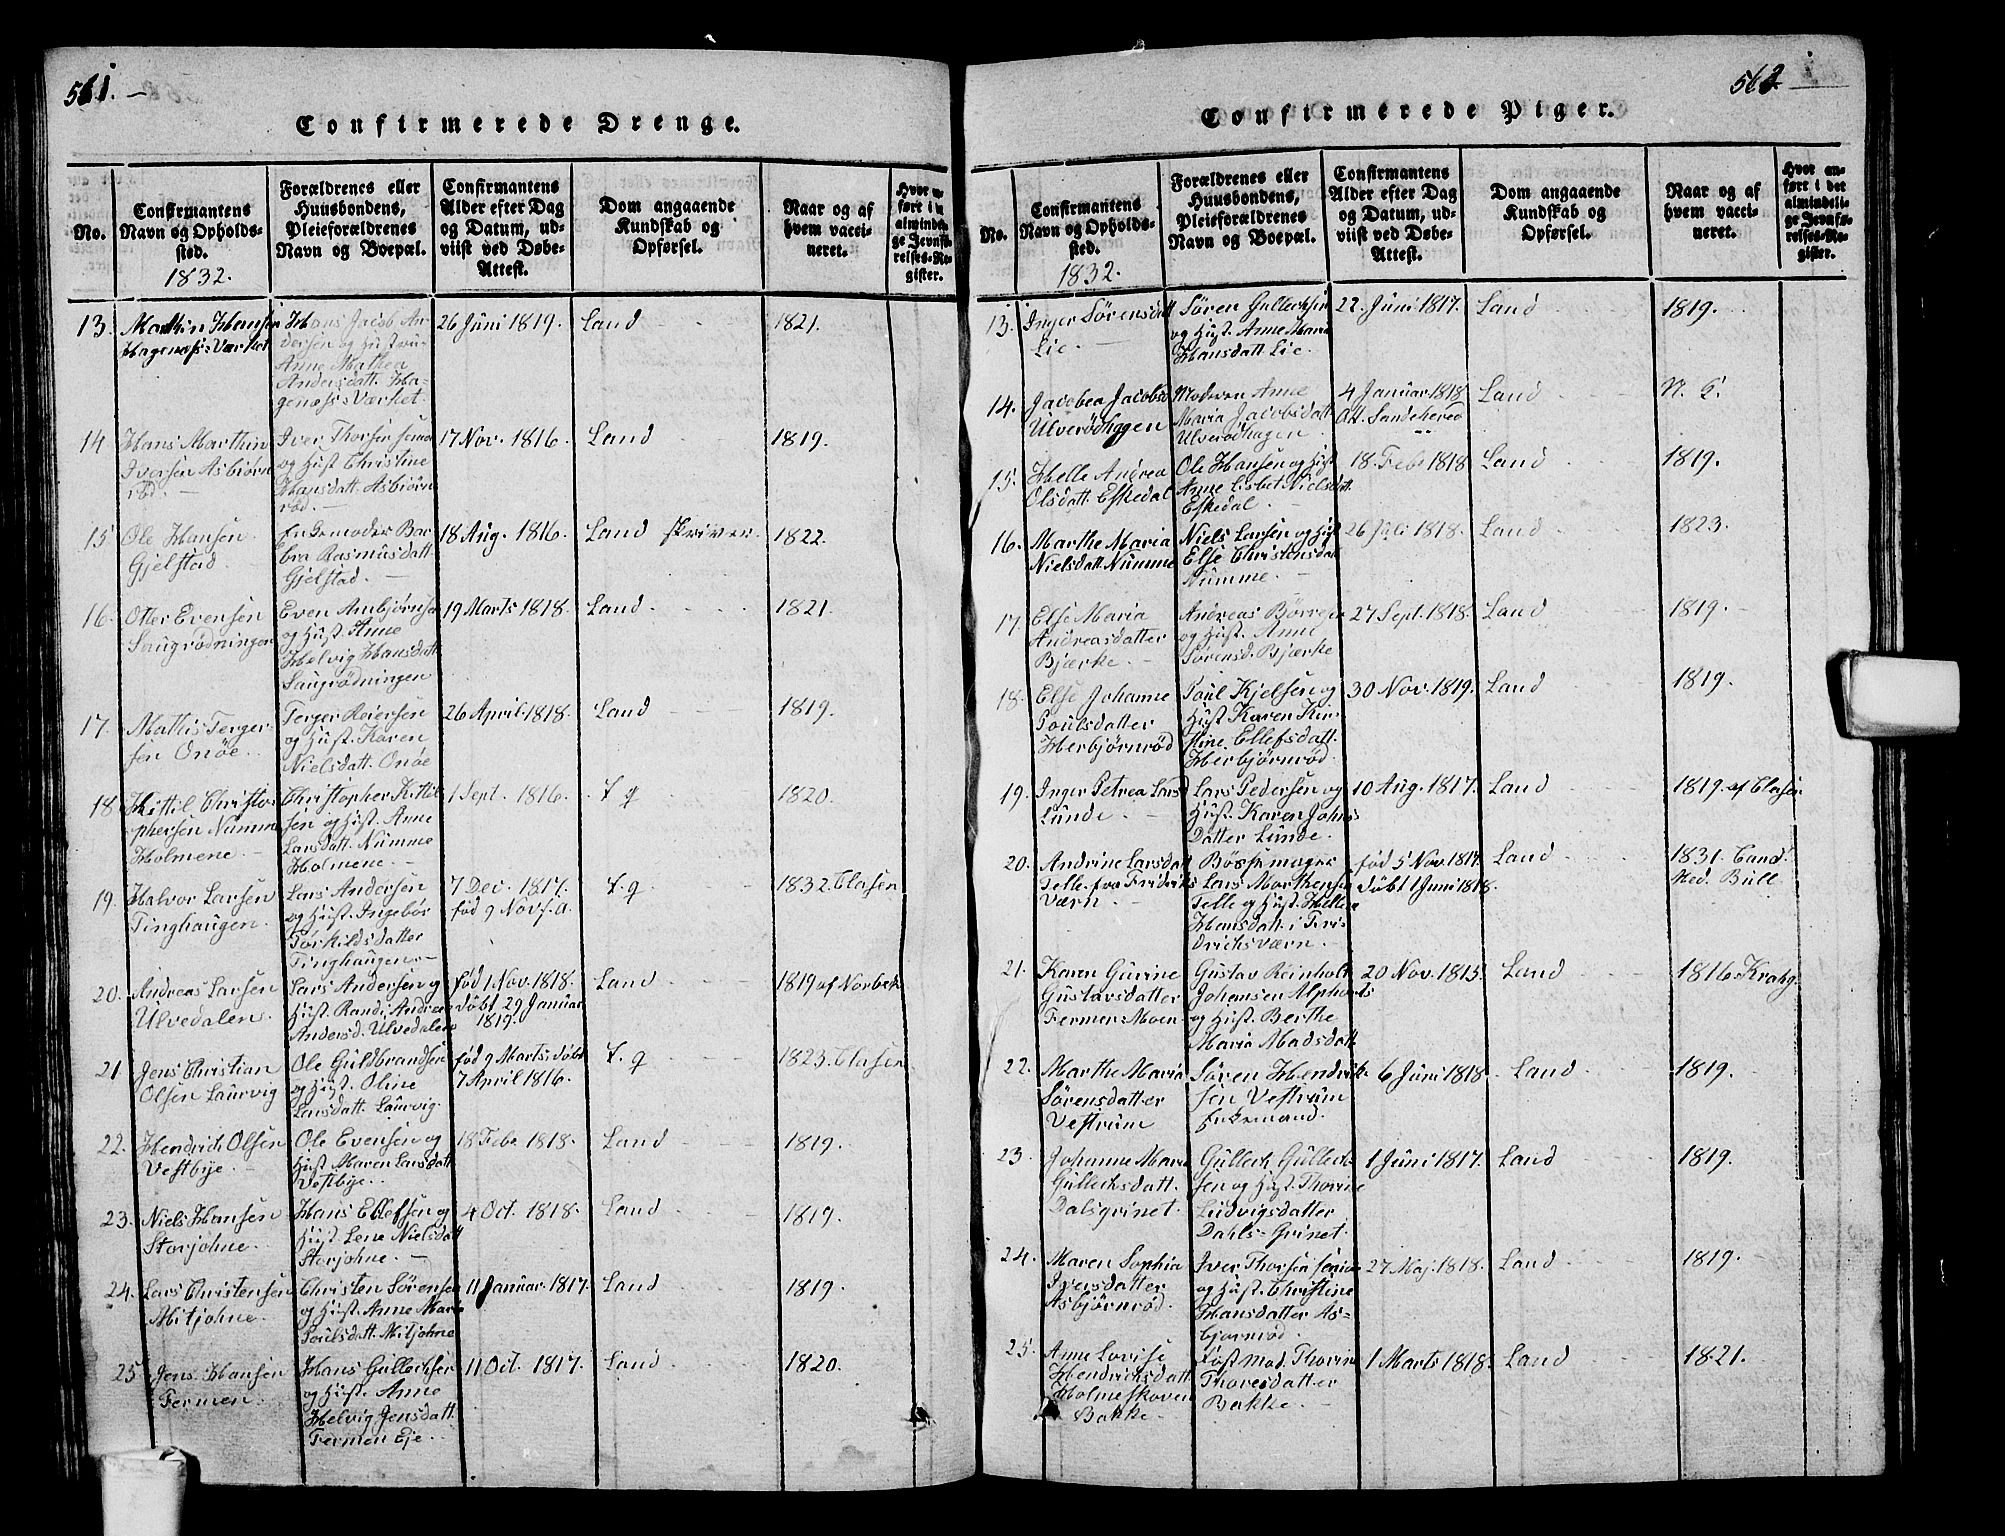 561. —
Confirmerede Drenge.
No.
Confirmantens
Navn og Opholds-
sted.
1832.
Forældrenes eller
Huusbondens,
Pleieforældrenes
Navn og Boepæl.
Confirmantens
Alder efter Dag
og Datum, ud-
viist ved Døbe-
Attest.
Dom angaaende
Kundskab og
Opførsel.
Naar og af
hvem vacci-
neret.
Hvor an-
ført i det
almindeli-
ge Jevnfø-
relses-Re-
gister.
13. Mathin Hansen
Hagenæss Værket
Hans Jacob An-
dersen og Hustru
Anne Mathea
Andersdatt. Ha-
genæss Værket.
26 Juni 1819. Land 1821.
14 Hans Marthin
Iversen Asbiørn
rød. —
Iver Thorsen
og Hust Christine
Hansdatt. Asbiørn
rød. —
17 Nov. 1816. Land 1819.
15 Ole Hansen
Gjelstad.
Enkemoder Bar-
bra Rasmusdatt.
Gjelstad. —
18 Aug. 1816. Land skriver. 1822.
16. Otter Evensen
Saugrødningen
Even Ambjørnsen
og Hust. Anne
Helvig Hansdatt.
Saugrødningen
19 Marts 1818. Land. 1821.
17. Mathis Terger-
sen Onöe.
Terger Reiersen
og Hust. Karen
Nielsdatt. Onöe
26 April 1818. Land 1819.
18 Kittil Christo-
phersen Numme
Holmene. —
Christopher Kittil
sen og Hust. Anne
Larsdatt. Numme
Holmene. —
1 Sept. 1816. T. g 1820.
19. Halvor Larsen
Tinghaugen.
Lars Andersen
og Hust. Ingebor
Torkildsdatter
Tinghaugen. —
7 Dec. 1817.
fød 9 Nov. s. a.
T. g 1832. Clasen
20. Andreas Larsen
Ulvedalen.
Lars Andersen og
Hust. Randi Andrea
Andersd. Ulvedalen
fød 1 Nov. 1818.
døbt 29 Januar
1819.
Land 1819 af Norbek
21 Jens Christian
Olsen Laurvig
Ole Guldbrandsen
og Hust. Oline
Larsdatt. Laurvig.
fød 9 Marts. døbt
7 April 1816.
T. g 1823. Clasen
22. Hendrich Olsen
Vestbye. —
Ole Evensen og
Hust Maren Larsdatt
Vestbye.
18 Febr 1818. Land 1819.
23. Niels Hansen
Storjohne.
Hans Ellefsen og
Hust Lene Nielsdatt
Storjohne. —
4 Oct. 1818. Land 1819.
24. Lars Christensen
Mitjohne.
Christen Sørensen
og Hust. Anne Maria
Poulsdatt. Mitjohne
11 Januar 1817. Land 1819.
25 Jens Hansen
Fermen.
Hans Gullechsen
og Hust. Anne
Helvig Jensdatt.
Fermen Eje. —
11 Oct. 1817. Land 1820.
562
Confirmerede Piger.
No.
Confirmantens
Navn og Opholds-
sted.
1832.
Forældrenes eller
Huusbondens,
Pleieforældrenes
Navn og Boepæl.
Confirmantens
Alder efter Dag
og Datum, ud-
viist ved Døbe-
Attest.
Dom angaaende
Kundskab og
Opførsel.
Naar og af
hvem vacci-
neret.
Hvor an-
ført i det
almindeli-
ge Jevnfø-
relses-Re-
gister.
13. Inger Sørensdatt
Lie. —
Søren Gullechsen
og Hust. Anne Maria
Hansdatt. Lie.
22. Juni 1817. Land 1819.
14. Jacobea Jacobsd
Ulverødhagen
Moderen Anne
Maria Jacobsdatt.
Ulverødhagen
4 Januar 1818
Att. Sandeherred
Land
15. Helle Andrea
Olsdatt. Eskedal
Ole Hansen og Hust
Anne Lisbet Nielsdatt.
Eskedal
18. Febr 1818 Land 1819.
16. Marthe Maria
Nielsdatt. Numme
Niels Larsen og Hust
Else Christensdatt
Numme. —
26 Juli 1818. Land 1823.
17. Else Maria
Andreasdatter
Bjærke. —
Andreas Börresen
og Hust. Anne
Sørensd. Bjærke
27 Sept. 1818. Land 1819.
18. Else Johanne
Poulsdatter
Herbjørnrød
Poul Kjelsen og
Hust Karen Kir-
stine Ellefsdatt.
Herbjørnrød.
30 Nov. 1819. Land 1819.
19. Inger Petrea Larsd
Lunde. —
Lars Pedersen og
Hust. Karen Johns
Datter Lunde.
10 Aug. 1817. Land 1819. af Clasen
20. Andrine Larsdatt
Telle fra Fridrichs
Værn. —
Bössemager
Lars Marthensen
Telle og Hust. Hellena
Hansdatt. i Fri-
drichsværn. —
fød 5 Nov. 1817.
døbt 1 Juni 1818.
Land 1831. Cand.
Med. Bull
21. Karen Gurine
Gustavsdatter
Fermen Moen
Gustav Reinholt
Johansen
og Hust. Berthe
Maria Madsdatt
20 Nov. 1815. Land 1816. Krahg.
22. Marthe Maria
Sørensdatter
Vestrum
Søren Hendrik-
sen Vestrum
Enkemand.
6 Juni 1818. Land 1819.
23. Johanne Maria
Gullechsdatt.
Dalsgrinet.
Gullech Gullech-
sen og Hust. Thorine
Ludvigsdatter
Dahls-Grinet.
1 Juni 1817. Land 1819.
24. Maren Sophia
Iversdatter
Asbjørnrød.
Iver Thorsen
og Hust. Christine
Hansdatter As-
bjørnrød.
27 Maj. 1818. Land 1819.
25. Anne Lovise
Hendrichsdatt
Holmeskoven
Bakke —
Fost.mod. Thorine
Thoresdatter
Bakke.
1 Marts 1818. Land 1821.